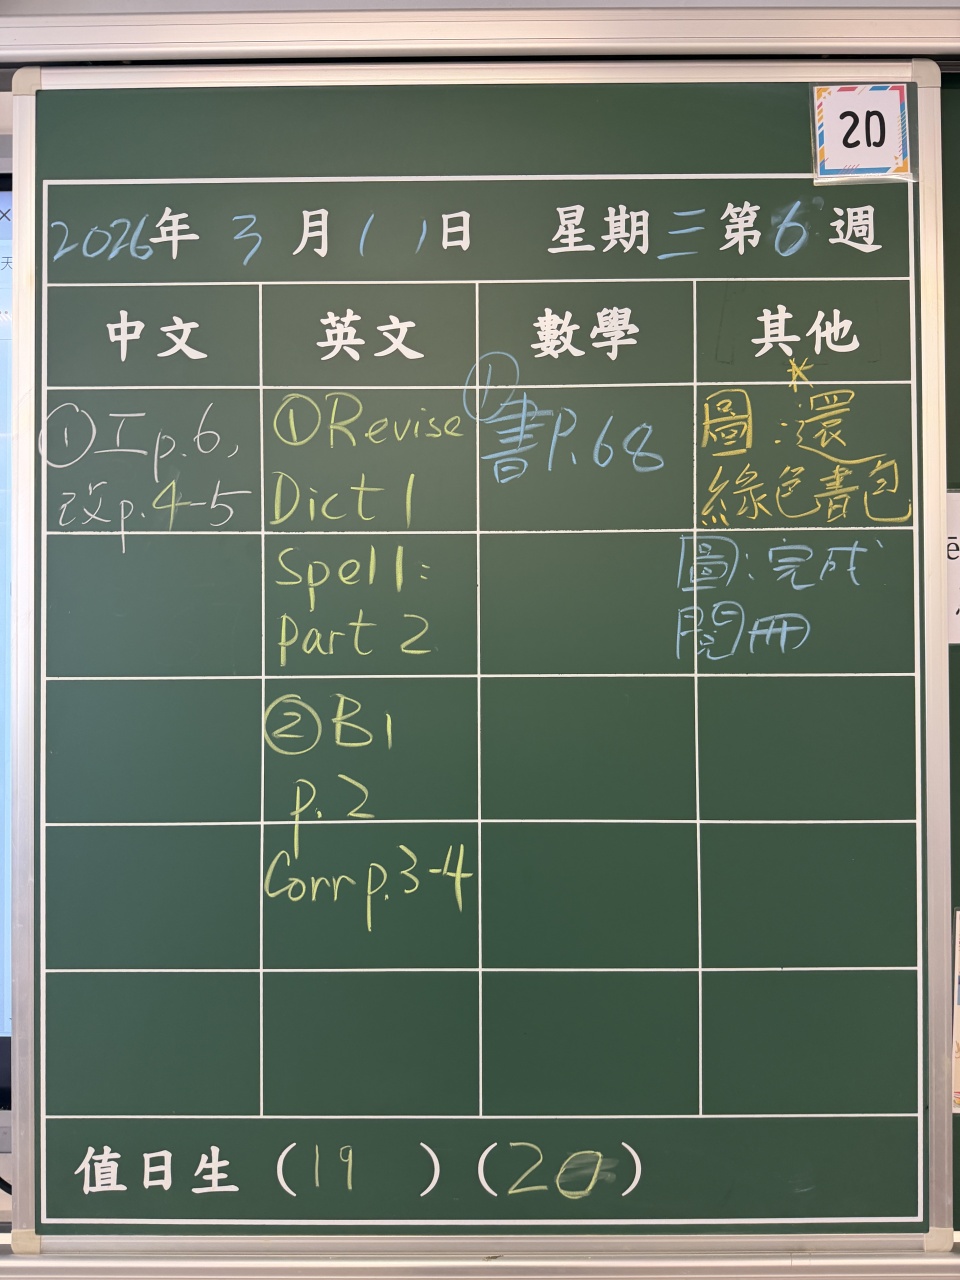 2D
2026年 3月11日 星期三第6週
中文 英文 數學 其他
①工p.6,
改p.4-5
①Revise
Dict 1
Spell:
Part 2
②B1
p.2
Corr p.3-4
①
書P.68
*
圖:還
綠色書包
圖:完成
閱冊
值日生 (19) (20)